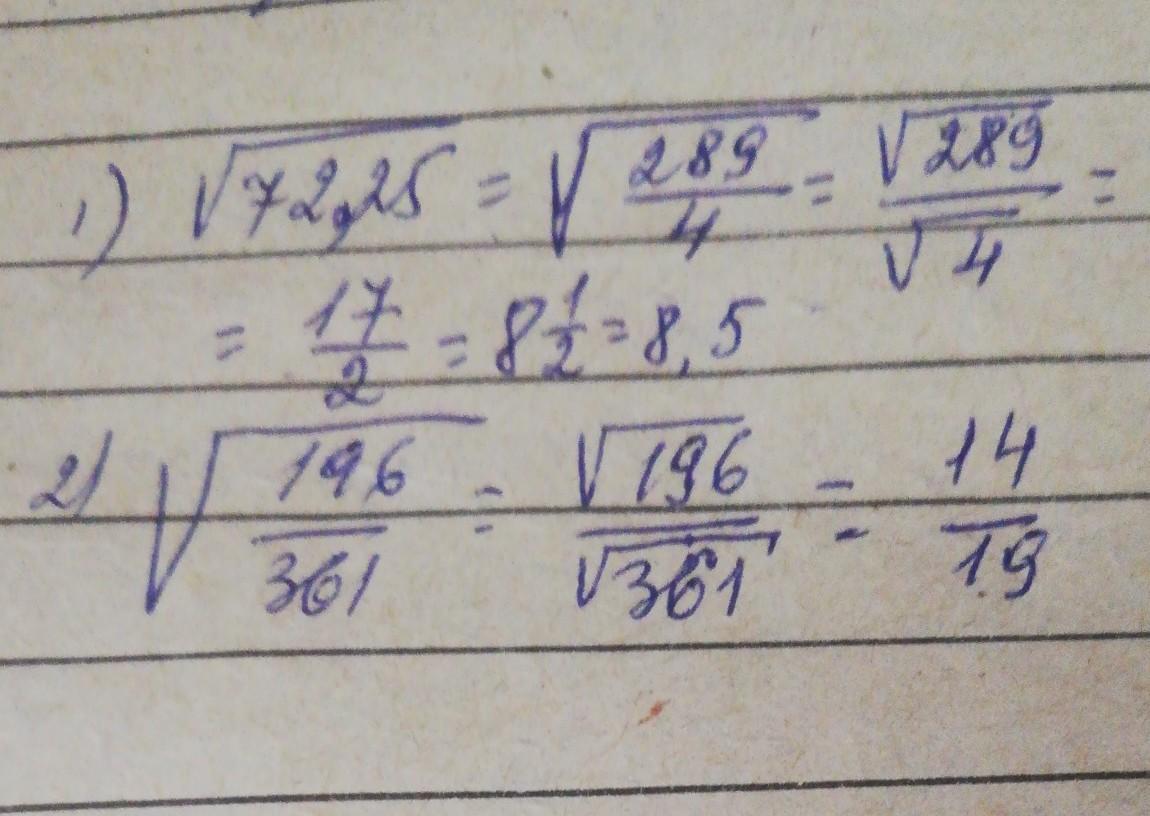 1) √72,25 = √289/4 = √289/√4 =
= 17/2 = 8 1/2 = 8,5
2) √196/361 = √196/√361 = 14/19